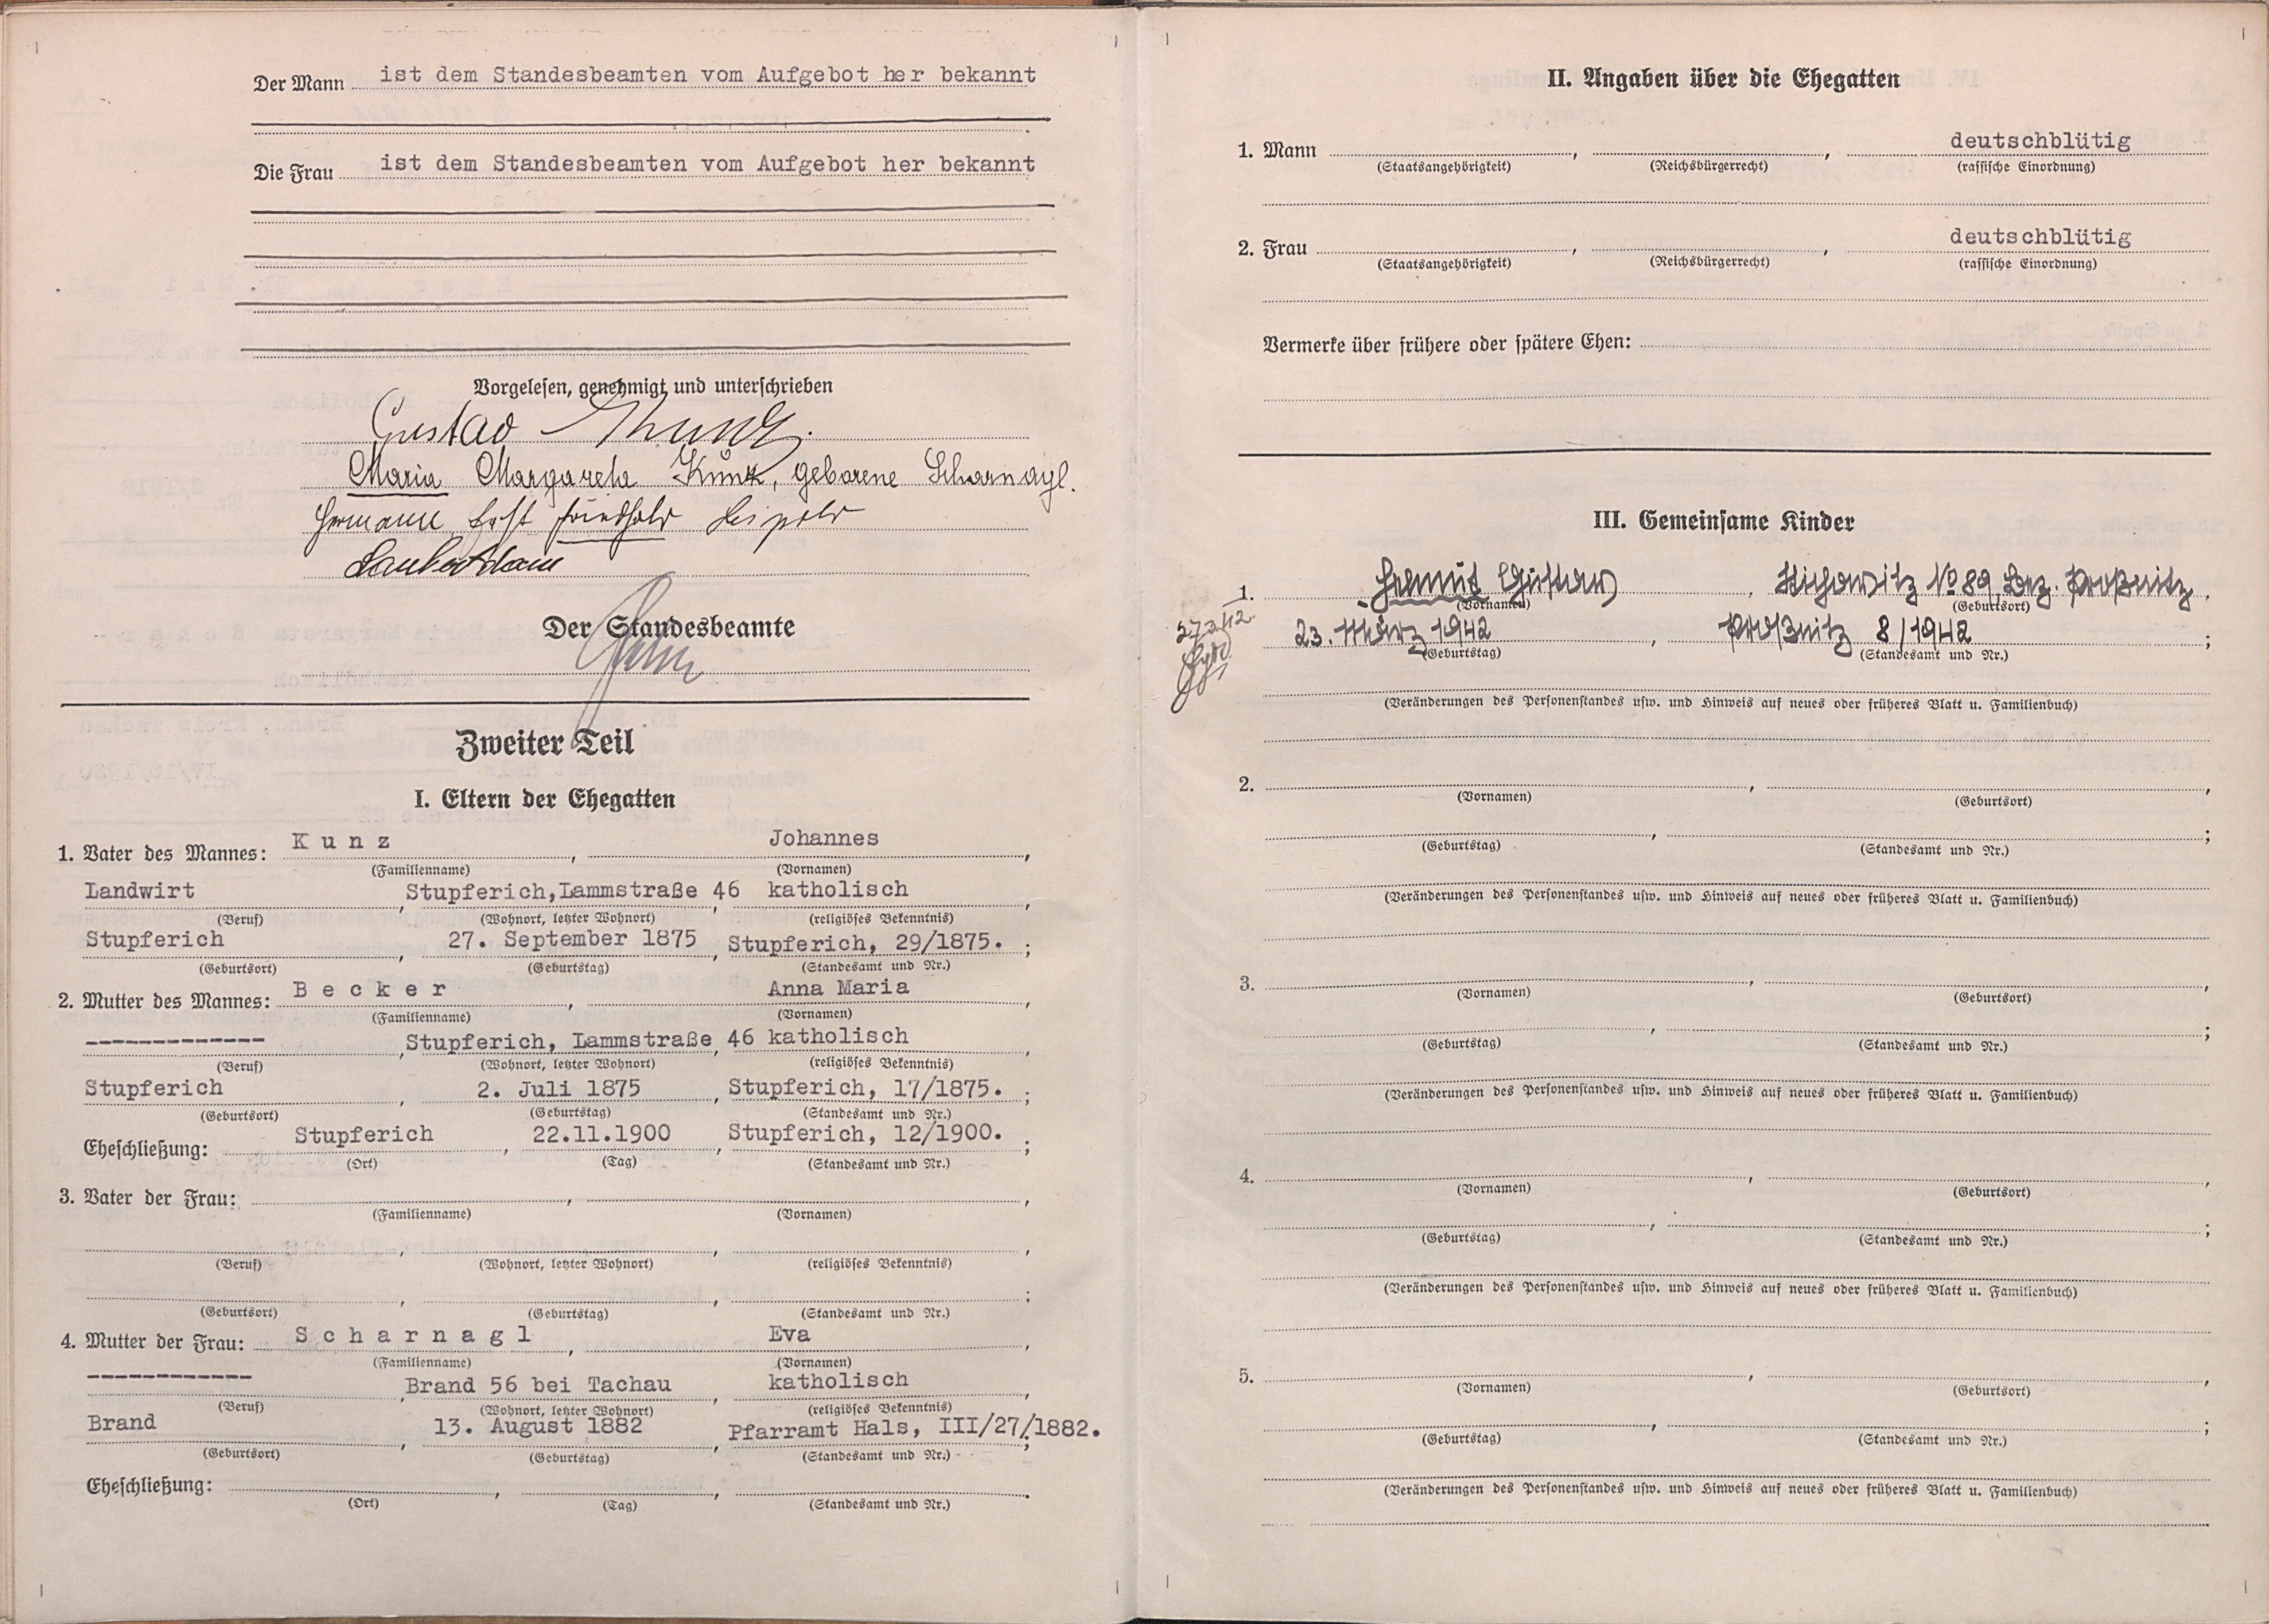 Der Mann ist dem Standesbeamten vom Aufgebot her bekannt
Die Frau ist dem Standesbeamten vom Aufgebot her bekannt
Vorgelesen, genehmigt und unterschrieben
Gustav Kunz.
Maria Margareta Kunz, geborene Scharnagl.
Hermann Ernst
Der Standesbeamte
Zweiter Teil
I. Eltern der Ehegatten
1. Vater des Mannes: Kunz, Johannes,
(Familienname) (Vornamen)
Landwirt, Stupferich, Lammstraße 46, katholisch,
(Beruf) (Wohnort, letzter Wohnort) (religiöses Bekenntnis)
Stupferich, 27. September 1875, Stupferich, 29/1875. ;
(Geburtsort) (Geburtstag) (Standesamt und Nr.)
2. Mutter des Mannes: Becker, Anna Maria,
(Familienname) (Vornamen)
-------------, Stupferich, Lammstraße 46, katholisch,
(Beruf) (Wohnort, letzter Wohnort) (religiöses Bekenntnis)
Stupferich, 2. Juli 1875, Stupferich, 17/1875. ;
(Geburtsort) (Geburtstag) (Standesamt und Nr.)
Eheschließung: Stupferich, 22.11.1900, Stupferich, 12/1900. ;
(Ort) (Tag) (Standesamt und Nr.)
3. Vater der Frau: , ,
(Familienname) (Vornamen)
, , ,
(Beruf) (Wohnort, letzter Wohnort) (religiöses Bekenntnis)
, , ;
(Geburtsort) (Geburtstag) (Standesamt und Nr.)
4. Mutter der Frau: Scharnagl, Eva,
(Familienname) (Vornamen)
------------, Brand 56 bei Tachau, katholisch,
(Beruf) (Wohnort, letzter Wohnort) (religiöses Bekenntnis)
Brand, 13. August 1882, Pfarramt Hals, III/27/1882. ;
(Geburtsort) (Geburtstag) (Standesamt und Nr.)
Eheschließung: , , .
(Ort) (Tag) (Standesamt und Nr.)
II. Angaben über die Ehegatten
1. Mann , , deutschblütig
(Staatsangehörigkeit) (Reichsbürgerrecht) (rassische Einordnung)
2. Frau , , deutschblütig
(Staatsangehörigkeit) (Reichsbürgerrecht) (rassische Einordnung)
Vermerke über frühere oder spätere Ehen:
III. Gemeinsame Kinder
1. Helmut Gustav, No 89, Bez. Proßnitz,
(Vornamen) (Geburtsort)
23. März 1942, Proßnitz 8/1942 ;
(Geburtstag) (Standesamt und Nr.)
(Veränderungen des Personenstandes usw. und Hinweis auf neues oder früheres Blatt u. Familienbuch)
2. , ,
(Vornamen) (Geburtsort)
, ;
(Geburtstag) (Standesamt und Nr.)
(Veränderungen des Personenstandes usw. und Hinweis auf neues oder früheres Blatt u. Familienbuch)
3. , ,
(Vornamen) (Geburtsort)
, ;
(Geburtstag) (Standesamt und Nr.)
(Veränderungen des Personenstandes usw. und Hinweis auf neues oder früheres Blatt u. Familienbuch)
4. , ,
(Vornamen) (Geburtsort)
, ;
(Geburtstag) (Standesamt und Nr.)
(Veränderungen des Personenstandes usw. und Hinweis auf neues oder früheres Blatt u. Familienbuch)
5. , ,
(Vornamen) (Geburtsort)
, ;
(Geburtstag) (Standesamt und Nr.)
(Veränderungen des Personenstandes usw. und Hinweis auf neues oder früheres Blatt u. Familienbuch)